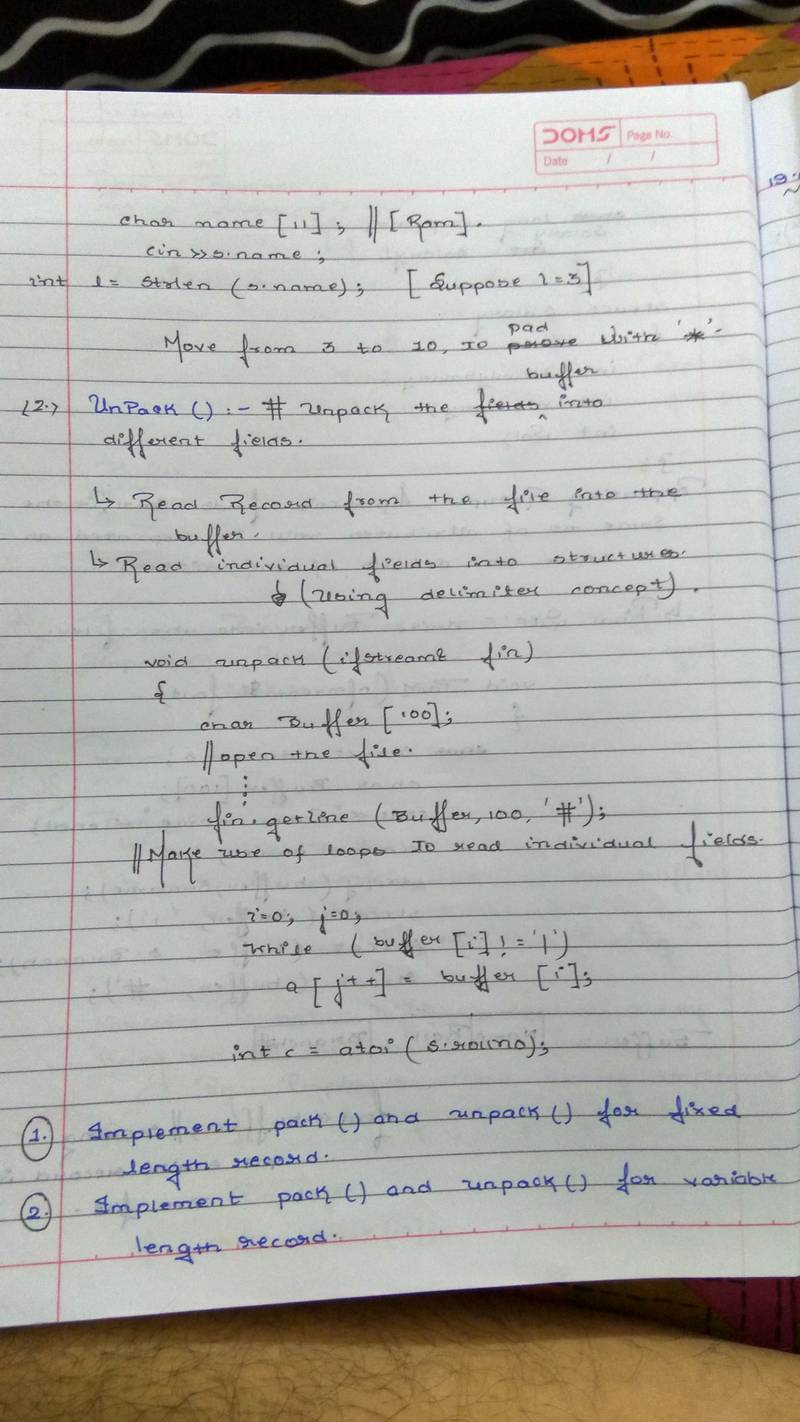 DOMS Page No.
Date / /
19.
char name [11]; // [Ram].
cin >> s.name;
int l = strlen (s.name); [Suppose l=3]
pad
Move from 3 to 10, to with '*'-
buffer
(2.) UnPack () :- # Unpack the fields into
different fields.
↳ Read Record from the file into the
buffer.
↳ Read individual fields into structures.
↳ (Using delimiter concept).
void unpack (ifstream& fin)
{
char Buffer [100];
// open the file.
⋮
fin.getline (Buffer, 100, '#');
// Make use of loops to read individual fields.
i=0; j=0;
while (buffer [i] != '|')
a [j++] = buffer [i];
int c = atoi (s.rollno);
1. Implement pack () and unpack () for fixed
length record.
2. Implement pack () and unpack () for variable
length record.